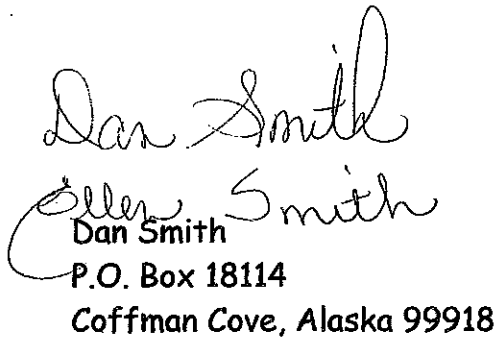 Dan Smith
Ellen Smith
Dan Smith
P.O. Box 18114
Coffman Cove, Alaska 99918